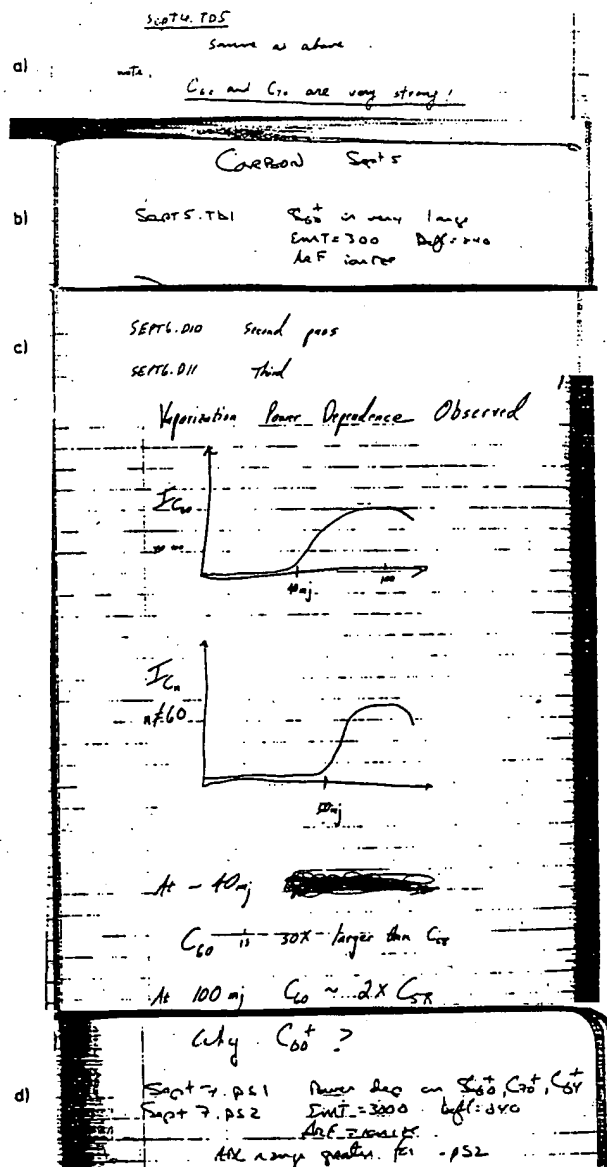 Sept4.TD5
Same as above.
a)
note.
C60 and C70 are very strong!
CARBON Sept 5
b)
SEPT5.TD1 C60+ is very large
EMT=300 Defl=240
ArF ionize
c)
SEPT6.D10 Second pass
SEPT6.D11 Third
Vaporization Power Dependence Observed
I C60
40mj. 100
I Cn
n≠60
50mj
At ~40mj
C60 is 30X larger than C58
At 100 mj C60 ~ 2X C58
Why C60+ ?
d)
Sept 7.PS1 Power dep on C60+, C70+, C84+
Sept 7.PS2 EMT=3000 Defl=240
ArF
range greater for PS2